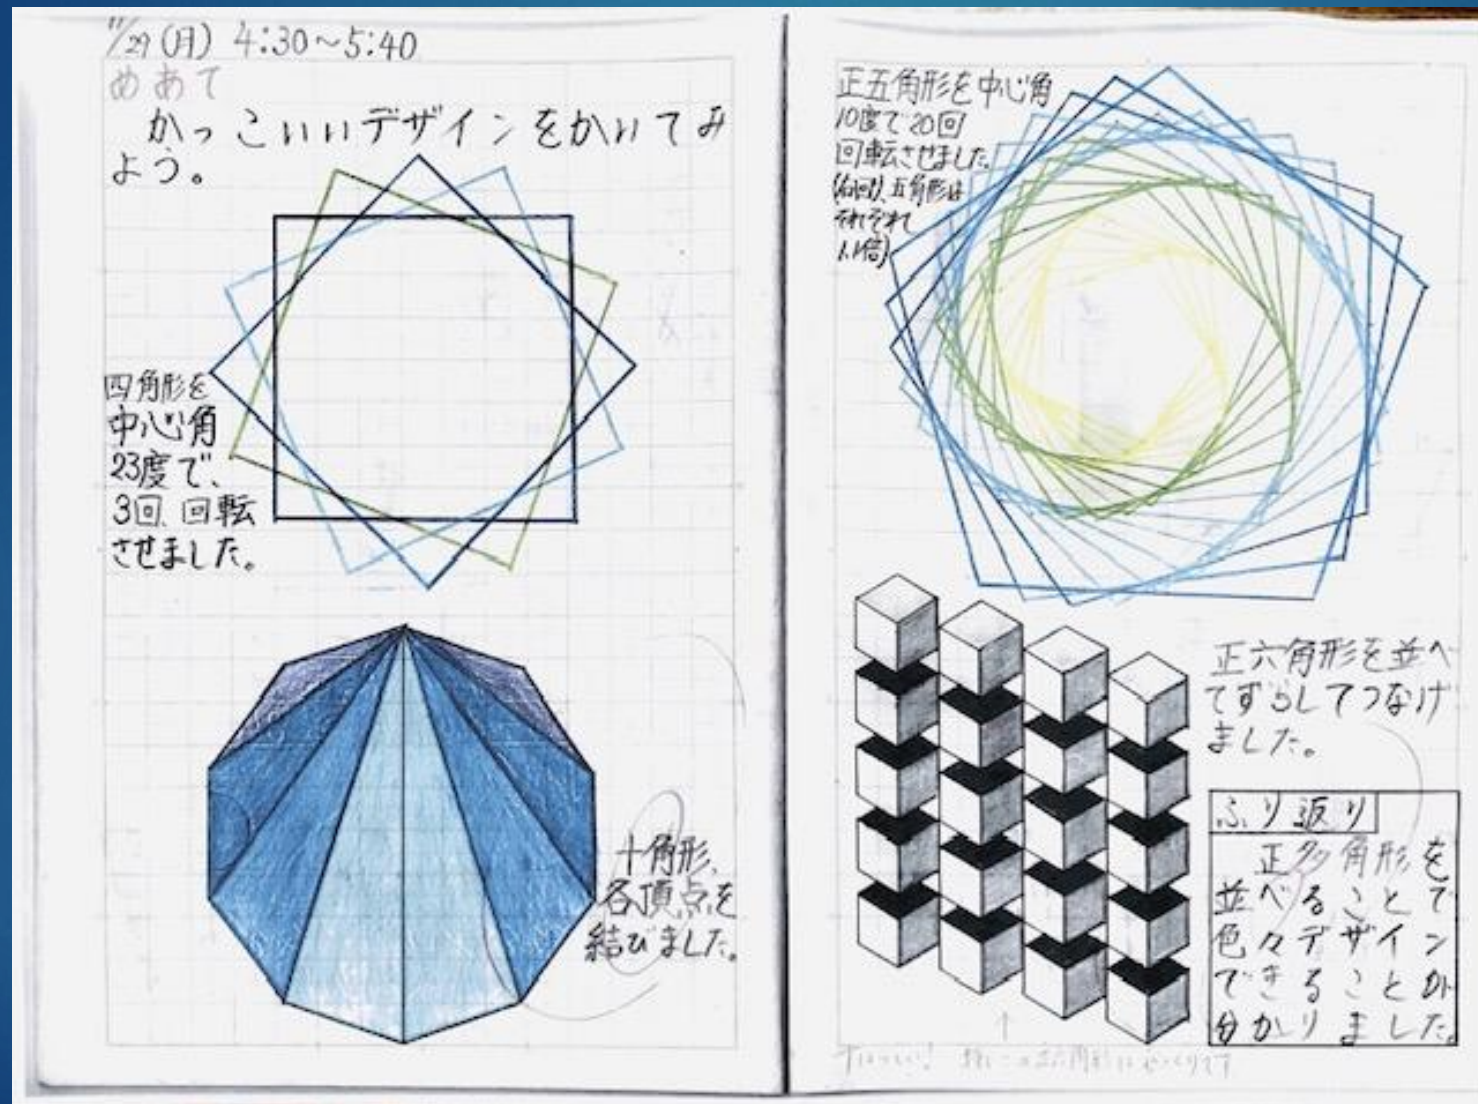 11/29(月) 4:30～5:40
めあて
かっこいいデザインをかいてみ
よう。
四角形を
中心角
23度で、
3回、回転
させました。
十角形、
各頂点を
結びました。
正五角形を中心角
10度で20回
回転させました。
(右回り、五角形は
それぞれ
1.1倍)
正六角形を並べ
てずらしてつなげ
ました。
ふり返り
正多角形を
並べることで
色々デザイン
できることが
分かりました。